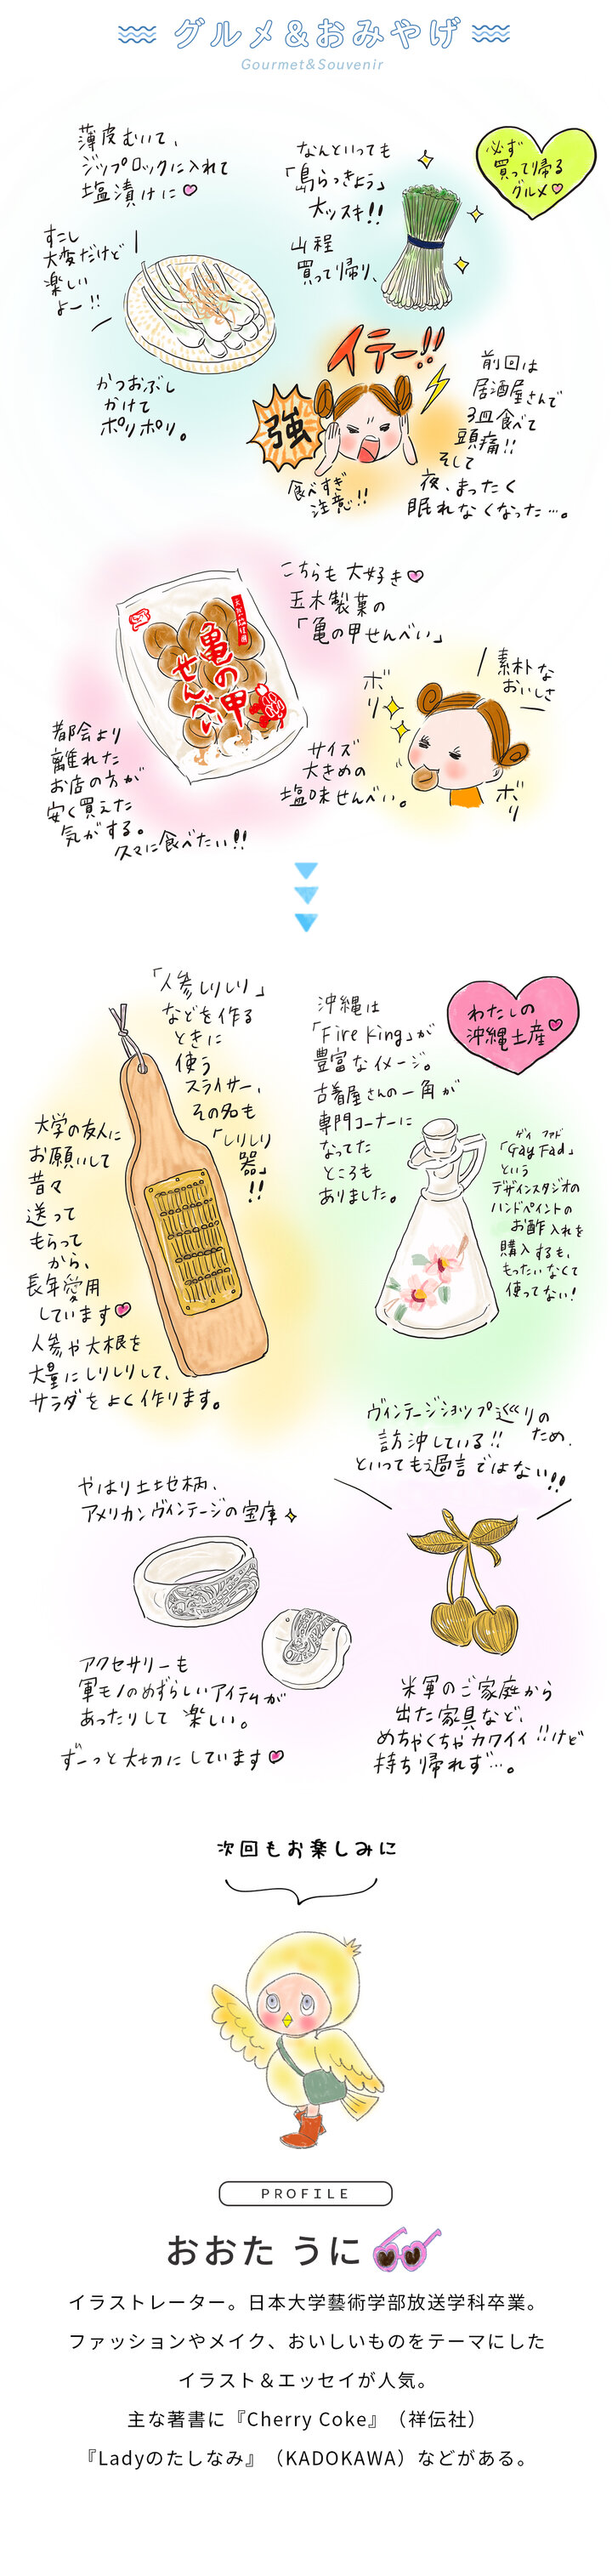 グルメ&おみやげ
Gourmet&Souvenir
必ず
買って帰る
グルメ
なんといっても
「島らっきょう」
大ッスキ!!
山程
買って帰り、
薄皮むいて、
ジップロックに入れて
塩漬けに
すこし
大変だけど
楽しい
よー!!
かつおぶし
かけて
ポリポリ。
イテー!!
強
食べすぎ
注意!!
前回は
居酒屋さんで
3皿食べて
頭痛!!
そして
夜、まったく
眠れなくなった…。
こちらも大好き
玉木製菓の
「亀の甲せんべい」
亀の甲
せんべい
サイズ
大きめの
塩味せんべい。
素朴な
おいしさ
ボリ
ボリ
都会より
離れた
お店の方が
安く買えた
気がする。
久々に食べたい!!
「人参しりしり」
などを作る
ときに
使う
スライサー、
その名も
「しりしり
器」
!!
大学の友人に
お願いして
昔々
送って
もらって
から、
長年愛用
しています
人参や大根を
大量にしりしりして、
サラダをよく作ります。
わたしの
沖縄土産
沖縄は
「Fire King」が
豊富なイメージ。
古着屋さんの一角が
専門コーナーに
なってた
ところも
ありました。
ゲイ ファド
「Gay Fad」
という
デザインスタジオの
ハンドペイントの
お酢入れを
購入するも、
もったいなくて
使ってない!
ヴィンテージショップ巡りの
ため、
訪沖している!!
といっても過言ではない!!
やはり土地柄、
アメリカンヴィンテージの宝庫
アクセサリーも
軍モノのめずらしいアイテムが
あったりして楽しい。
ずーっと大切にしています
米軍のご家庭から
出た家具など、
めちゃくちゃカワイイ!!けど
持ち帰れず…。
次回もお楽しみに
PROFILE
おおた うに
イラストレーター。日本大学藝術学部放送学科卒業。
ファッションやメイク、おいしいものをテーマにした
イラスト＆エッセイが人気。
主な著書に『Cherry Coke』（祥伝社）
『Ladyのたしなみ』（KADOKAWA）などがある。